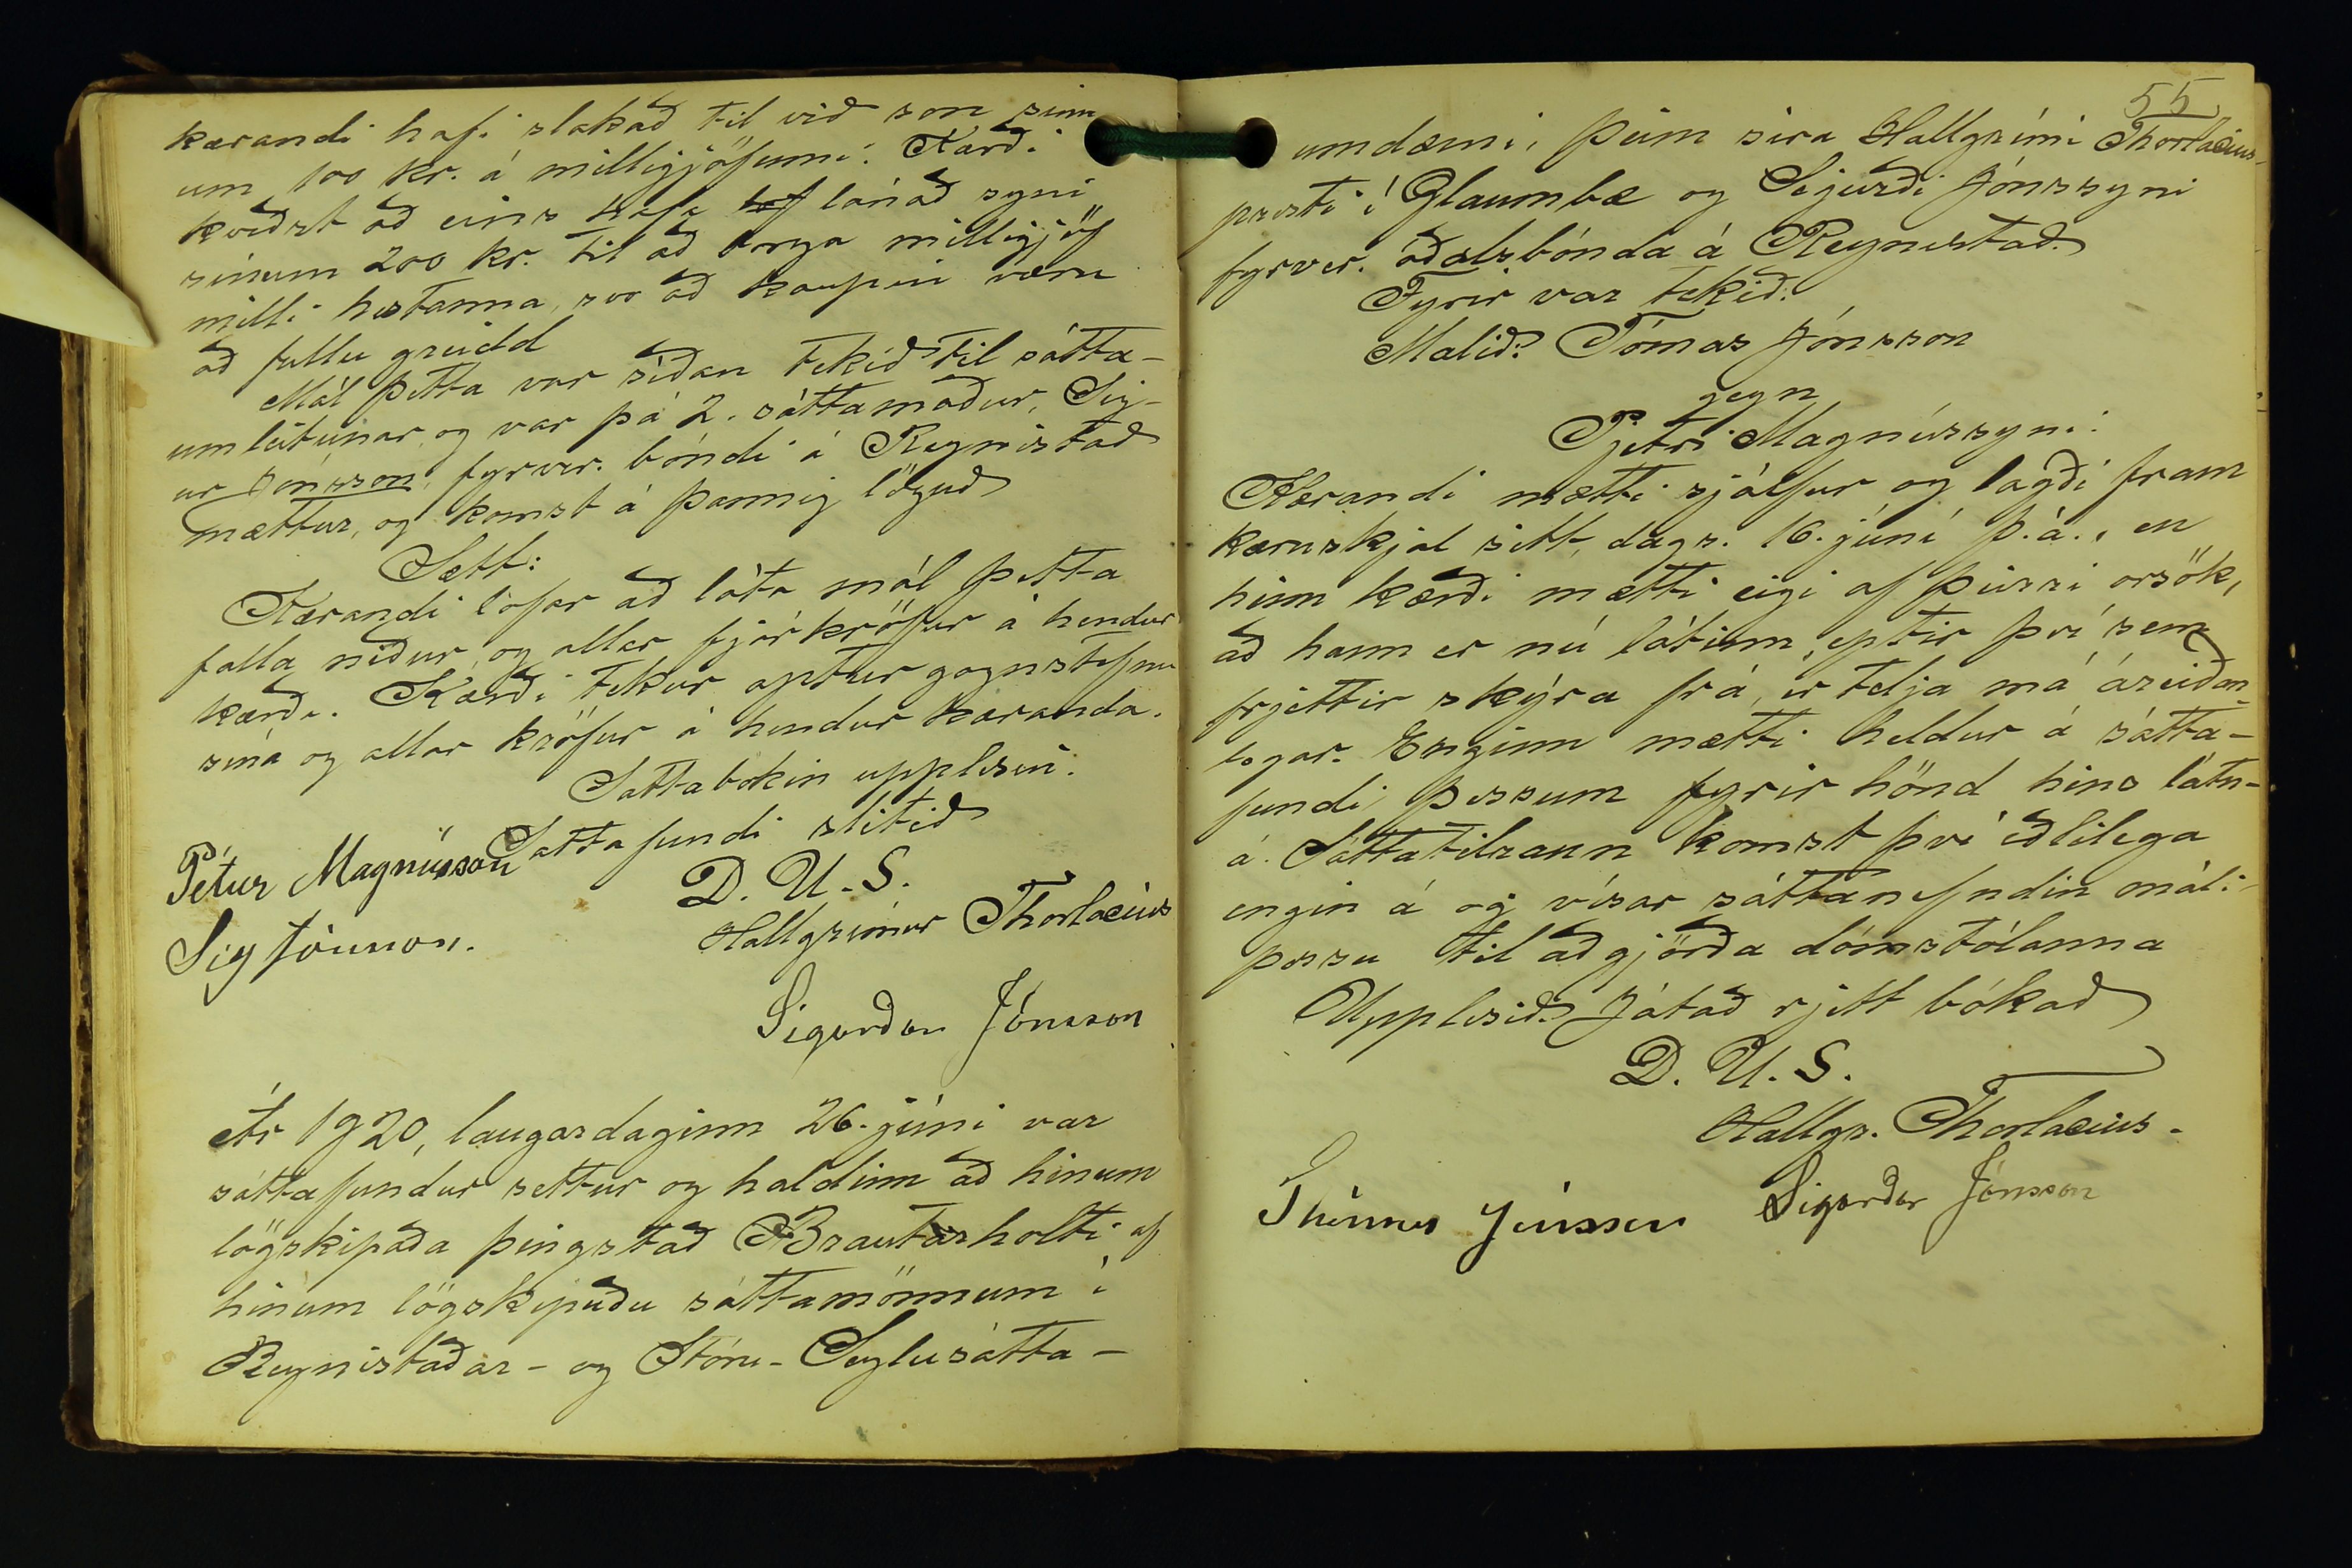 kærandi hafi slakað til við son sinn
um 100 kr. á milligjöfinni. Kærði
kveðst að eins hafa lánað syni
sínum 200 kr. til að borga milligjöf
milli hestanna, svo að kaupin væru
að fullu greidd
Mál þetta var síðan tekið til sátta-
umleitunar, og var þá 2. sáttamaður, Sig-
ur Jónsson, fyrver. bóndi á Reynistað
mættur, og komst á þannig löguð
Sætt:
Kærandi lofar að láta mál þetta
falla niður, og allar fjárkröfur á hendur
kærða. Kærði tekur aptur gagnstefnu
sína og allar kröfur á hendur kæranda.
Sáttabókin upplesin.
Sáttafundi slitið
Pétur Magnússon
D. U. S.
Sig Jónsson.
Hallgrímur Thorlacius
Sigurður Jónsson
Ár 1920, laugardaginn 26. júni var
sáttafundur settur og haldinn að hinum
lögskipaða þingstað Brautarholti, af
hinum lögskipuðu sáttamönnum í
Reynistaðar- og Stóru-Seylusátta-
55
umdæmi, þeim síra Hallgrími Thorlacius-
presti í Glaumbæ og Sigurði Jónssyni
fyrver. óðalsbónda á Reynistað.
Fyrir var tekið:
Málið: Tómas Jónsson
gegn
Pjetri Magnússyni.
Kærandi mætti sjálfur og lagði fram
kæruskjal sitt, dags. 16. júní þ.á., en
hinn kærði mætti eigi af þeirri orsök,
að hann er nú látinn, eptir því sem
frjettir skýra frá, er telja má áreiðan-
legar. Enginn mætti heldur á sátta-
fundi þessum fyrir hönd hins látn-
a. Sáttatilraun komst því eðlilega
engin á og vísar sáttanefndin máli
þessu til aðgjörða dómstólanna
Upplesið. Játað rjett bókað
D. U. S.
Hallgr. Thorlacius.
Thómas Jónsson
Sigurður Jónsson